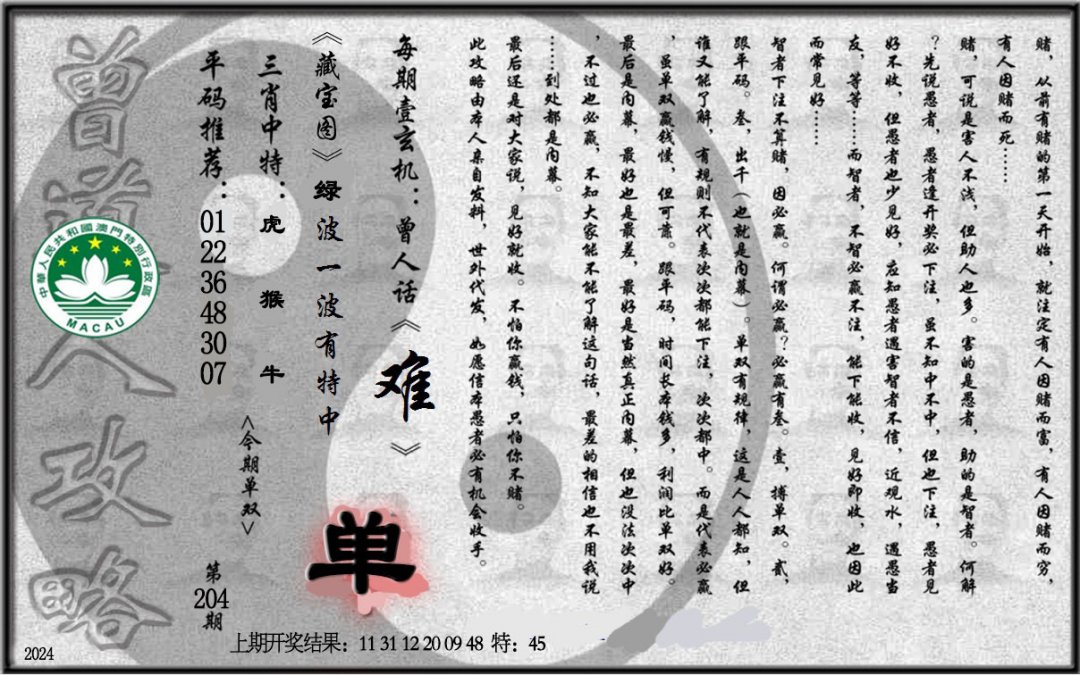 赌，从前有赌的第一天开始，就注定有人因赌而富，有人因赌而穷，
有人因赌而死……
赌，可说是害人不浅，但助人也多。害的是愚者，助的是智者。何解
？先说愚者，愚者逢开奖必下注，虽不知中不中，但也下注，愚者见
好不收，但愚者也少见好，应知愚者遇害智者不信，近观水，遇愚当
友，等等……而智者，不智必赢不注，能下能收，见好即收，也因此
而常见好……
智者下注不算赌，因必赢。何谓必赢？必赢有叁。壹，搏单双。贰，
跟平码。叁，出千（也就是内幕）。单双有规律，这是人人都知，但
谁又能了解，有规则不代表次次都能下注，次次都中。而是代表必赢
，虽单双赢钱慢，但可靠。跟平码，时间长本钱多，利润比单双好。
最后是内幕，最好也是最差，最好是当然真正内幕，但也没法次次中
，不过也必赢，不知大家能不能了解这句话，最差的相信也不用我说
……到处都是内幕。
最后还是对大家说，见好就收。不怕你赢钱，只怕你不赌。
此攻略由本人亲自发料，世外代发，如愿信本愚者必有机会收手。
每期壹玄机：曾人话《难》
《藏宝图》绿波一波有特中
三肖中特：虎 猴 牛
平码推荐：01 22 36 48 30 07
<今期单双>
单
第204期
曾道人攻略
中華人民共和國澳門特別行政區
MACAU
上期开奖结果：11 31 12 20 09 48 特：45
2024